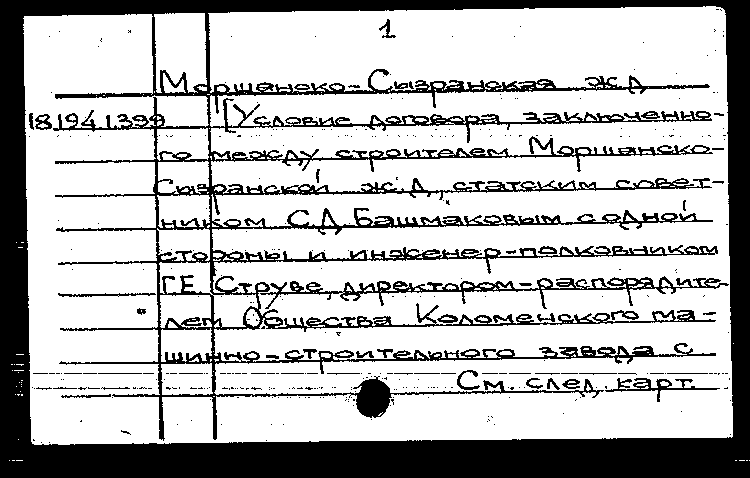 1
Моршанско-Сызранская ж.д
18.194.1.399 [Условие договора, заключенно-
го между строителем Моршанско-
Сызранской ж.д., статским совет-
ником С.Д. Башмаковым с одной
стороны и инженер-полковником
Г.Е Струве, директором-распорядите-
лем Общества Коломенского ма-
шинно-строительного завода с
См. след. карт.